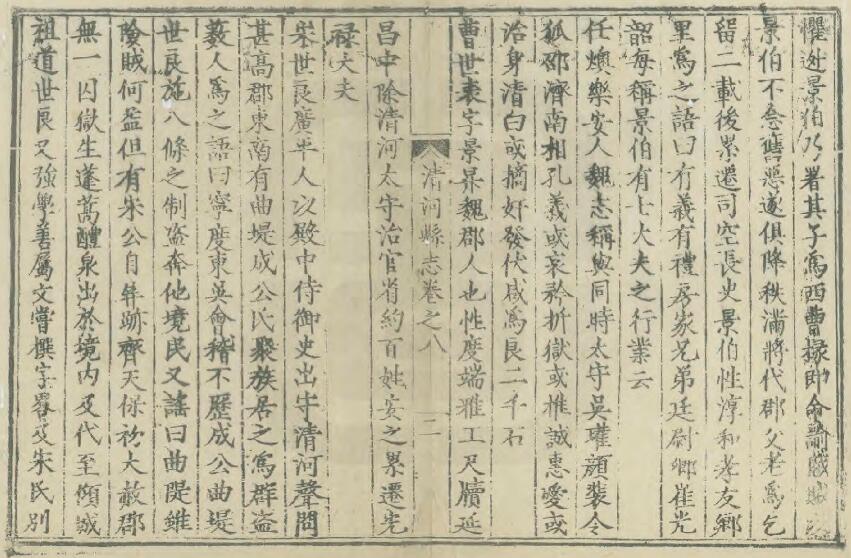 懼逊景伯乃署其子爲西曹掾即命諭賊賊
景伯不念舊惡遂俱降秩滿將代郡父老爲乞
留二載後累遷司空長史景伯性淳和孝友鄉
里爲之語曰有義有禮房家兄弟廷尉卿崔光
韶每稱景伯有士大夫之行業云
任燠樂安人魏志稱與同時太守吳瓘顔裴令
狐邵濟南相孔羲或哀矜折獄或推誠惠愛或
治身清白或擿奸發伏咸爲良二千石
曹世表字景昇魏郡人也性度端雅工尺牘延
清河縣志卷之八
二
昌中除清河太守治官省約百姓安之累遷光
祿大夫
宋世良廣平人以殿中侍御史出守清河聲問
甚高郡東南有曲堤成公氏聚族居之爲群盜
藪人爲之語曰寧度東吳會稽不歷成公曲堤
世良施八條之制盜奔他境民又謠曰曲隄雖
險賊何益但有宋公自屏跡齊天保初大赦郡
無一囚獄生蓬蒿醴泉出於境内及代至傾城
祖道世良又強學善屬文嘗撰字畧及宋氏別